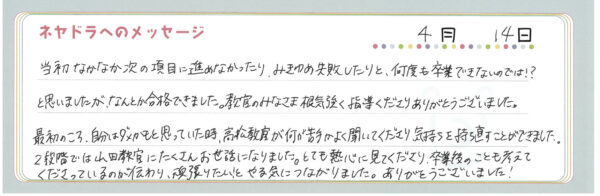 ネヤドラへのメッセージ
4月 14日
当初なかなか次の項目に進めなかったり、みきわめ失敗したりと、何度も卒業できないのでは!?
と思いましたが、なんとか合格できました。教官のみなさま根気強く指導くださりありがとうございました。
最初のころ、自分はダメかもと思っていた時、高松教官が何が苦手かよく聞いてくださり気持ちを持ち直すことができました。
2段階では山田教官にたくさんお世話になりました。とても熱心に見てくださり、卒業後のことも考えて
くださっているのが伝わり、頑張りたい!とやる気につながりました。ありがとうございました!